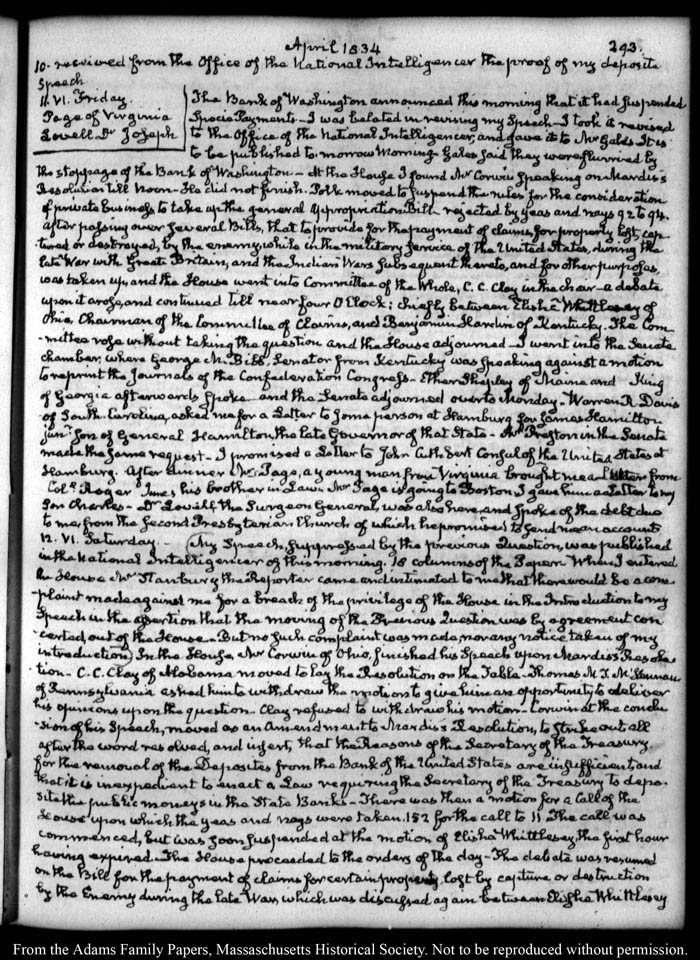 April 1834
293.
10. received from the Office of the National Intelligencer the proof of my deposite
Speech
11. VI. Friday.
Page of Virginia
Lovell Dr Joseph
The Bank of Washington announced this morning that it had suspended
Specie Payments — I was belated in revising my Speech — I took it revised
to the Office of the National Intelligencer, and gave it to Mr Gales. It is
to be published to-morrow Morning. Gales said they were flurried by
the stoppage of the Bank of Washington — At the House I found Mr Corwin speaking on Mardis's
Resolution till Noon — He did not finish. Polk moved to suspend the rules for the consideration
of private business to take up the general appropriation Bill — rejected by yeas and nays 92 to 94.
after passing over several Bills, that to provide for the payment of claims, for property lost, cap-
tured or destroyed, by the enemy while in the military service of the United States, during the
late War with Great Britain, and the Indian Wars subsequent thereto, and for other purposes,
was taken up, and the House went into Committee of the Whole, C. C. Clay in the chair — a debate
upon it arose, and continued till near four O'Clock; chiefly between Elisha Whittlesey of
Ohio, Chairman of the Committee of Claims, and Benjamin Hardin of Kentucky. The Com-
-mittee rose without taking the question and the House adjourned — I went into the Senate
chamber, where George M. Bibb, Senator from Kentucky was speaking against a motion
to reprint the Journals of the Confederation Congress — Ether Shepley of Maine and King
of Georgia afterwards spoke — and the Senate adjourned over to Monday — Warren R. Davis
of South-Carolina, asked me for a Letter to some person at Hamburg for James Hamilton
junr. Son of General Hamilton, the late Governor of that State — Mr Preston in the Senate
made the same request — I promised a Letter to John Cuthbert Consul of the United States at
Hamburg. After dinner Mr Page, a young man from Virginia brought me a Letter from
Coll. Roger Jones his brother in Law. Mr Page is going to Boston. I gave him a Letter to my
Son Charles — Dr Lovell the Surgeon General, was also here, and spoke of the debt due
to me, from the Second Presbyterian Church of which he promised to send me an account
12. VI. Saturday. — My Speech, suppressed by the previous Question, was published
in the National Intelligencer of this morning. 18 columns of the Paper — When I entered
the House Mr Stansbury the Reporter came and intimated to me that there would be a com-
-plaint made against me for a breach of the privilege of the House in the Introduction to my
Speech in the assertion that the moving of the Previous Question was by agreement con-
certed, out of the House — But no such complaint was made, nor any notice taken of my
introduction) In the House, Mr Corwin of Ohio, finished his Speech upon Mardis's Resolu-
tion — C. C. Clay of Alabama moved to lay the Resolution on the Table — Thomas M. T. McKennan
of Pennsylvania asked him to withdraw the motion to give him an opportunity to deliver
his opinions upon the question — Clay refused to withdraw his motion — Corwin at the conclu-
sion of his Speech, moved as an Amendment to Mardis's Resolution, to strike out all
after the word resolved, and insert, that the Reasons of the Secretary of the Treasury
for the removal of the Deposites from the Bank of the United States are insufficient and
that it is inexpedient to enact a Law requiring the Secretary of the Treasury to depo-
site the public moneys in the State Banks — There was then a motion for a Call of the
House upon which the yeas and nays were taken. 152 for the call to 11. The call was
commenced, but was soon suspended at the motion of Elisha Whittlesey, the first hour
having expired. The House proceeded to the orders of the day — The debate was resumed
on the Bill for the payment of claims for certain property, lost by capture or destruction
by the Enemy during the late War, which was discussed again between Elisha Whittlesey
From the Adams Family Papers, Massachusetts Historical Society. Not to be reproduced without permission.